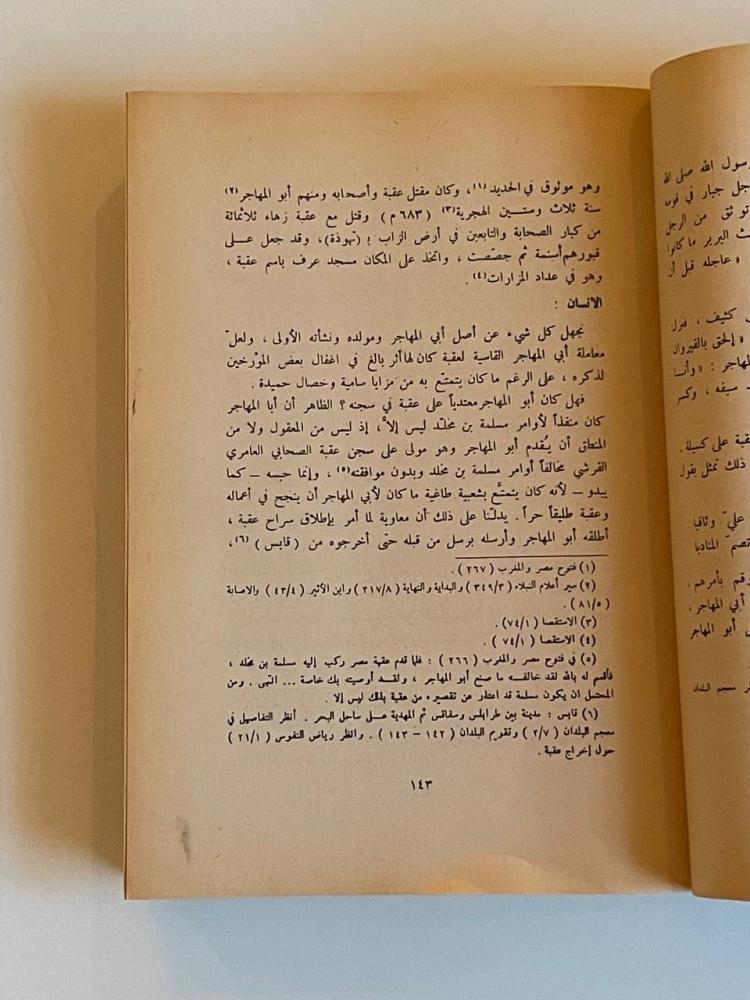 وهو موثوق في الحديد (١) ، وكان مقتل عقبة وأصحابه ومنهم أبو المهاجر (٢)
سنة ثلاث وستـــين الهجرية (٣) ( ٦٨٣ م ) وقتل مع عقبة زهاء ثلاثمائة
من كبار الصحابة والتابعين في أرض الزاب بـ (تهوذة) ، وقد جعل عـــلى
قبورهم أسنمة ثم جصّصت ، واتخذ على المكان مسجد عرف باسم عقبة ،
وهو في عداد المزارات (٤) .
الانسان :
نجهل كل شيء عن أصل أبي المهاجر ومولده ونشأته الأولى ، ولعلّ
معاملة أبي المهاجر القاسية لعقبة كان لها أثر بالغ في اغفال بعض المؤرخين
لذكره ، على الرغم ما كان يتمتّع به من مزايا سامية وخصال حميدة .
فهل كان أبو المهاجر معتدياً على عقبة في سجنه ؟ الظاهر أن أبا المهاجر
كان منفذاً لأوامر مسلمة بن مخلّد ليس إلاّ ، إذ ليس من المعقول ولا من
المنطق أن يُقدم أبو المهاجر وهو مولى على سجن عقبة الصحابي العامري
القرشي مخالفاً أوامر مسلمة بن مخلد وبدون موافقته (٥) ، وإنما حبسه – كما
يبدو – لأنه كان يتمتّع بشعبية طاغية ما كان لأبي المهاجر أن ينجح في أعماله
وعقبة طليقاً حراً . يدلّنا على ذلك أن معاوية لما أمر بإطلاق سراح عقبة ،
أطلقه أبو المهاجر وأرسله برسل من قبله حتى أخرجوه من ( قابس ) (٦) ،
(١) فتوح مصر والمغرب ( ٢٦٧ ) .
(٢) سير أعلام النبلاء ( ٣٤٩/٣ ) والبداية والنهاية ( ٢١٧/٨ ) وابن الأثير ( ٤٣/٤ ) والاصابة
( ٨١/٥ ) .
(٣) الاستقصا ( ٧٤/١ ) .
(٤) الاستقصا ( ٧٤/١ ) .
(٥) في فتوح مصر والمغرب ( ٢٦٦ ) : فلما قدم عقبة مصر ركب إليه مسلمة بن مخلد ،
فأقسم له بالله لقد خالفه ما صنع أبو المهاجر ، ولقـد أوصيته بك خاصة ... انتهى . ومن
المحتمل ان يكون مسلمة قد اعتذر عن تقصيره من عقبة بذلك ليس إلا .
(٦) قابس : مدينة بين طرابلس وسفاقس ثم المهدية عـلى ساحل البحر . أنظر التفاصيل في
معجم البلدان ( ٢/٧ ) وتقويم البلدان ( ١٤٢ – ١٤٣ ) . وانظر رياض النفوس ( ٢١/١ )
حول إخراج عقبة .
١٤٣
رسول الله صلى الله
جل جبار في قومه
توثق من الرجل
البربر ما كانوا
« عاجله قبل أن
كثيف ، فنزل
« إلحق بالقيروان
المهاجر : « وأنـا
سيفه ، وكسر
عقبة على كسيلة .
ذلك تمثل بقول
عليّ وثاقيا
المناديا
وقم بأمرهم ،
أبي المهاجر ،
أبو المهاجر
معجم البلدان